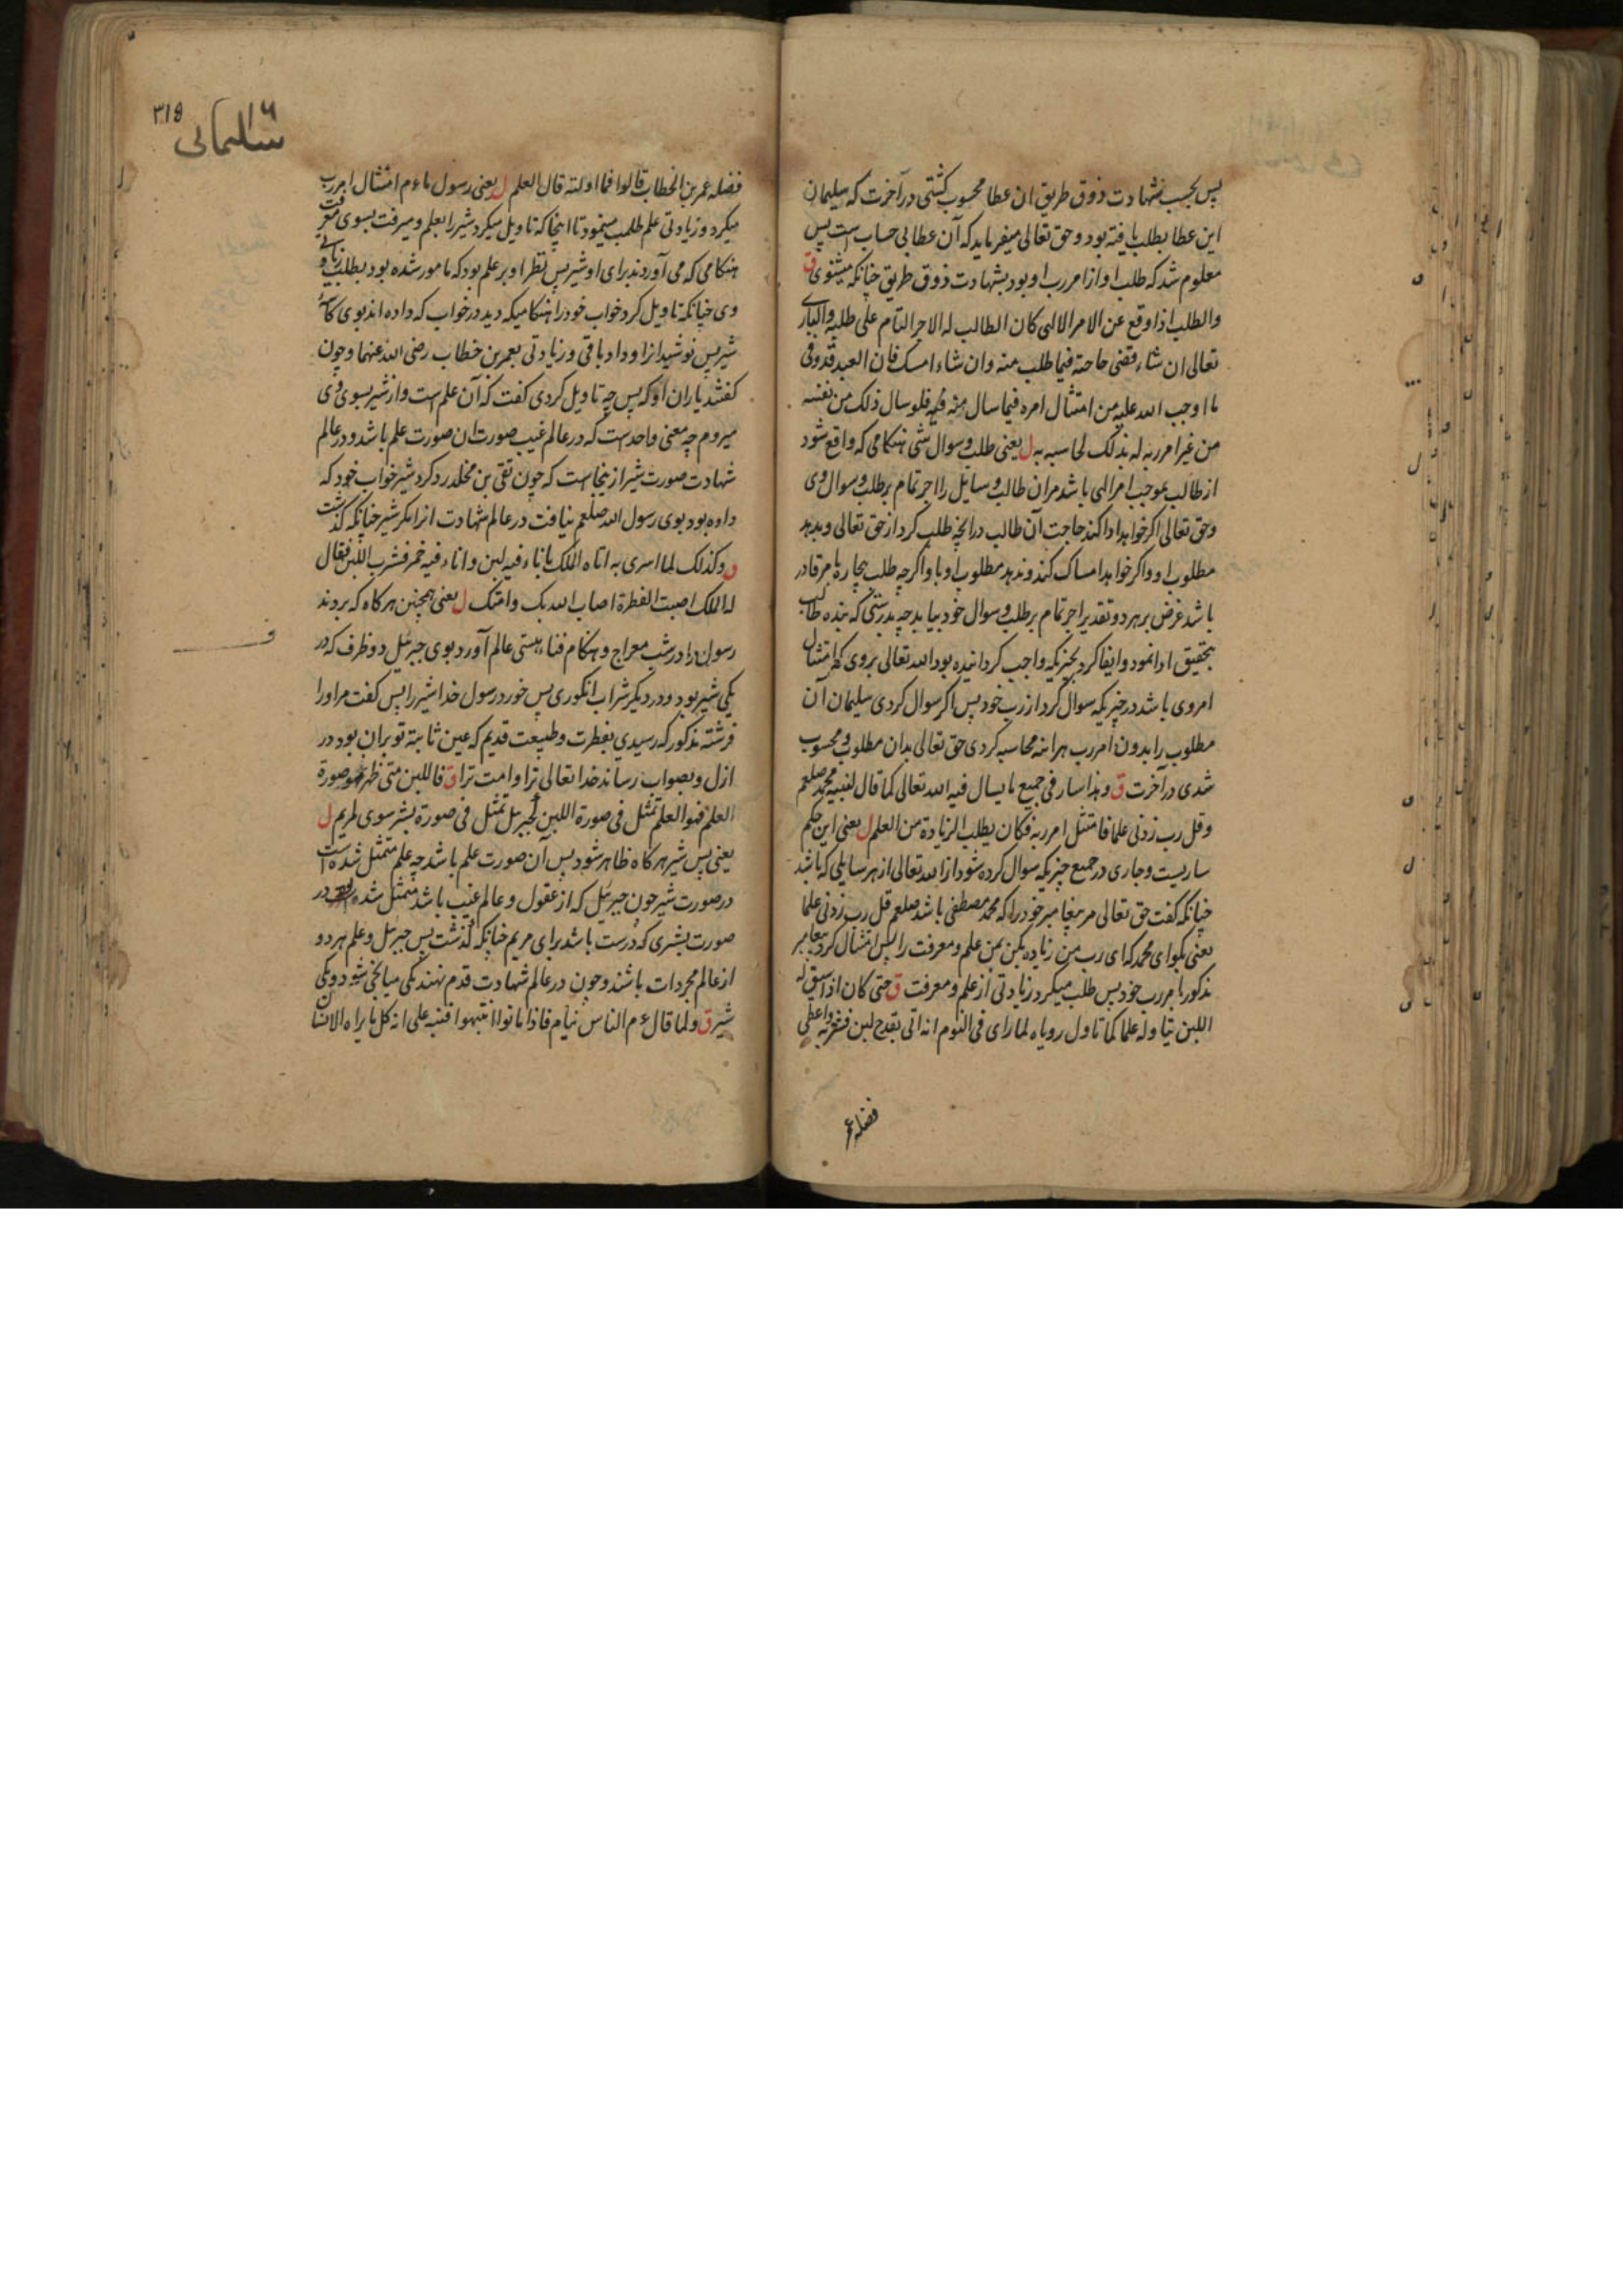 پس بحسب شهادت ذوق طریق ان عطا محسوب کشتی در آخرت که سلیمان
این عطا بطلب یافته بود و حق تعالی میفرماید که آن عطا بی حساب است پس
معلوم شد که طلب او از امر رب او بود بشهادت ذوق طریق چنانکه میشنوی ق
والطلب اذا وقع عن الامر الالهی کان الطالب له الاجر التام علی طلبه والباری
تعالی ان شاء قضی حاجته فیما طلب منه وان شاء امسک فان العبد قد وفی
ما اوجب الله علیه من امتثال امره فیما سال منه فیه فلو سال ذلک من نفسه
من غیر امر ربه له بذلک لحاسبه به ل یعنی طلب و سوال شی هنکامی که واقع شود
از طالب بموجب امر الهی باشد مران طالب و سایل را اجر تمام بر طلب و سوال وی
وحق تعالی اکر خواهد ادا کند حاجت آن طالب در انچه طلب کرد از حق تعالی و بدهد
مطلوب او و اکر خواهد امساک کند و ندهد مطلوب او با و اکر چه طلب بامر قادر
باشد غرض بر هر دو تقدیر اجر تمام بر طلب و سوال خود بیابد چه بدرستی که بنده طالب
بتحقیق ادا نمود و ایفا کرد بچیزیکه واجب کردانیده بود الله تعالی بروی که امتثال
امروی باشد در چیزیکه سوال کرد از رب خود پس اکر سوال کردی سلیمان آن
مطلوب را بدون امر رب هراینه محاسبه کردی حق تعالی بدان مطلوب و محسوب
شدی در آخرت ق وهذا سار فی جمیع ما یسال فیه الله تعالی کما قال لنبیه محمد صلعم
وقل رب زدنی علما فامتثل امر ربه فکان یطلب الزیادة من العلم ل یعنی این حکم
ساریست و جاری در جمیع چیزیکه سوال کرده شود از الله تعالی از هر سایلی که باشد
چنانکه کفت حق تعالی مر پیغامبر خود را که محمد مصطفی باشد صلعم قل رب زدنی علما
یعنی بکو ای محمد که ای رب من زیاده بکن بمن علم و معرفت را پس امتثال کرد پیغامبر
مذکور بامر رب خود پس طلب میکرد زیادتی از علم و معرفت ق حتی کان اذا سیق له
اللبن یتاوله علما کما تاول رویاه لما رای فی النوم انه اتی بقدح لبن فشربه واعطی
فضله عمر
۳۱۹
۱۶
سلیمانی
فضله عمر بن الخطاب قالوا فما اولته قال العلم ل یعنی رسول ما ءم امتثال امر رب
میکرد و زیادتی علم طلب مینمود تا اینجا که تاویل میکرد شیر را بعلم و میرفت بسوی معرفت
هنکامی که می آوردند برای او شیر پس نظر او بر علم بود که مامور شده بود بطلب زیادتی
وی چنانکه تاویل کرد خواب خود را هنکامیکه دید در خواب که داده اند بوی کاسهٔ
شیر پس نوشید ازا و داد باقی و زیادتی بعمر بن خطاب رضی الله عنهما و چون
کفتند یاران او که پس چه تاویل کردی کفت که آن علم است و از شیر بسوی وی
میروم چه معنی واحد است که در عالم غیب صورت ان صورت علم باشد و در عالم
شهادت صورت شیر ازینجاست که چون تقی بن مخلد رد کرد شیر خواب خود که
داده بود بوی رسول الله صلعم نیافت در عالم شهادت ازا مکر شیر چنانکه کذشت
ق وکذلک لما اسری به اتاه الملک باناء فیه لبن واناء فیه خمر فشرب اللبن فقال
له الملک اصبت الفطرة اصاب الله بک وامتک ل یعنی همچنین هر کاه که بردند
رسول را در شب معراج و هنکام فناء هستی عالم آورد بوی جبرئیل دو ظرف که در
یکی شیر بود و در دیکر شراب انکوری پس خورد رسول خدا شیر را پس کفت مر اورا
فرشته مذکور که رسیدی بفطرت و طبیعت قدیم که عین ثابته تو بران بود در
ازل و بصواب رساند خدا تعالی ترا و امت ترا ق فاللبن متی ظهر فهو صورة
العلم فهو العلم تمثل فی صورة اللبن کجبرئل تمثل فی صورة بشر سوی لمریم ل
یعنی پس شیر هر کاه ظاهر شود پس آن صورت علم باشد چه علم متمثل شده است
در صورت شیر چون جبرئیل که از عقول و عالم غیب باشد متمثل شده در
صورت بشری که درست باشد برای مریم چنانکه کذشت پس جبرئل و علم هر دو
از عالم مجردات باشند و چون در عالم شهادت قدم نهند یکی میانجی شود و یکی
شیر ق ولما قال ءم الناس نیام فاذا ماتوا انتبهوا فنبه علی انه کل ما یراه الانسان